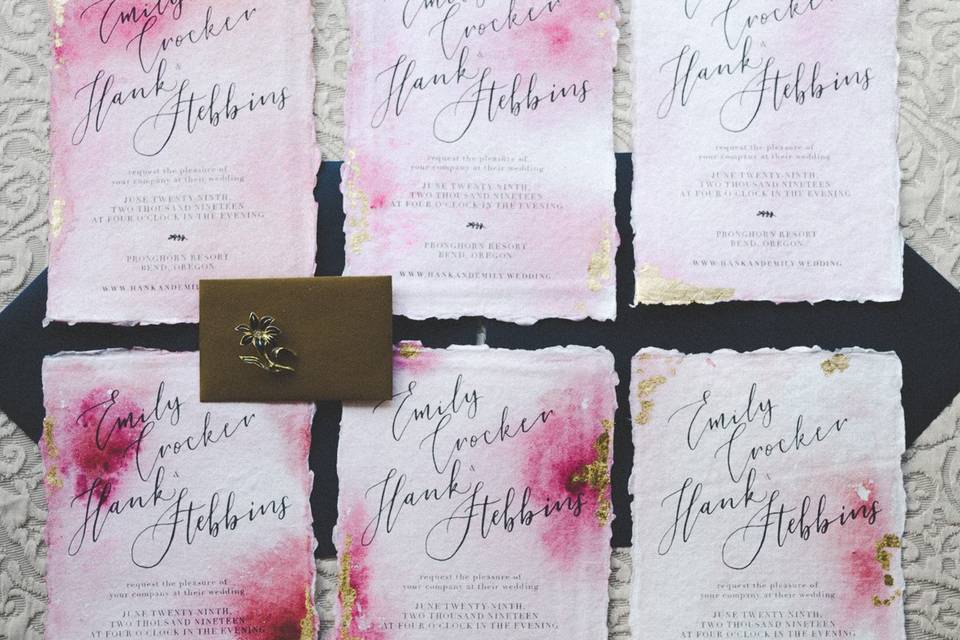 Emily
Crocker
&
Hank
Stebbins
request the pleasure of
your company at their wedding
JUNE TWENTY-NINTH,
TWO THOUSAND NINETEEN
AT FOUR O'CLOCK IN THE EVENING
PRONGHORN RESORT
BEND, OREGON
WWW.HANKANDEMI
Emily
Crocker
&
Hank
Stebbins
request the pleasure of
your company at their wedding
JUNE TWENTY-NINTH,
TWO THOUSAND NINETEEN
AT FOUR O'CLOCK IN THE EVENING
PRONGHORN RESORT
BEND, OREGON
WWW.HANKANDEMILY.WEDDING
Emily
Crocker
&
Hank
Stebbins
request the pleasure of
your company at their wedding
JUNE TWENTY-NINTH,
TWO THOUSAND NINETEEN
AT FOUR O'CLOCK IN THE EVENING
PRONGHORN RESORT
BEND, OREGON
WWW.HANKANDEMILY.WEDDING
Emily
Crocker
&
Hank
Stebbins
request the pleasure of
your company at their wedding
JUNE TWENTY-NINTH,
TWO THOUSAND NINETEEN
AT FOUR O'CLOCK IN THE EVENING
Emily
Crocker
&
Hank
Stebbins
request the pleasure of
your company at their wedding
JUNE TWENTY-NINTH,
TWO THOUSAND NINETEEN
AT FOUR O'CLOCK IN THE EVENING
Emily
Crocker
&
Hank
Stebbins
request the pleasure of
your company at their wedding
JUNE TWENTY-NINTH,
TWO THOUSAND NINETEEN
AT FOUR O'CLOCK IN THE EVENING